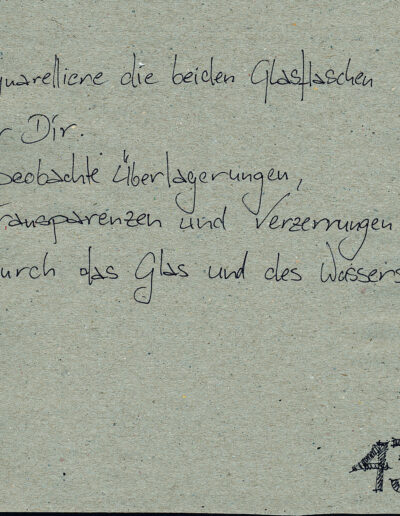 quarelliere die beiden Glasflaschen
r Dir.
beobachte Überlagerungen,
Transparenzen und Verzerrungen
durch das Glas und des Wassers
43